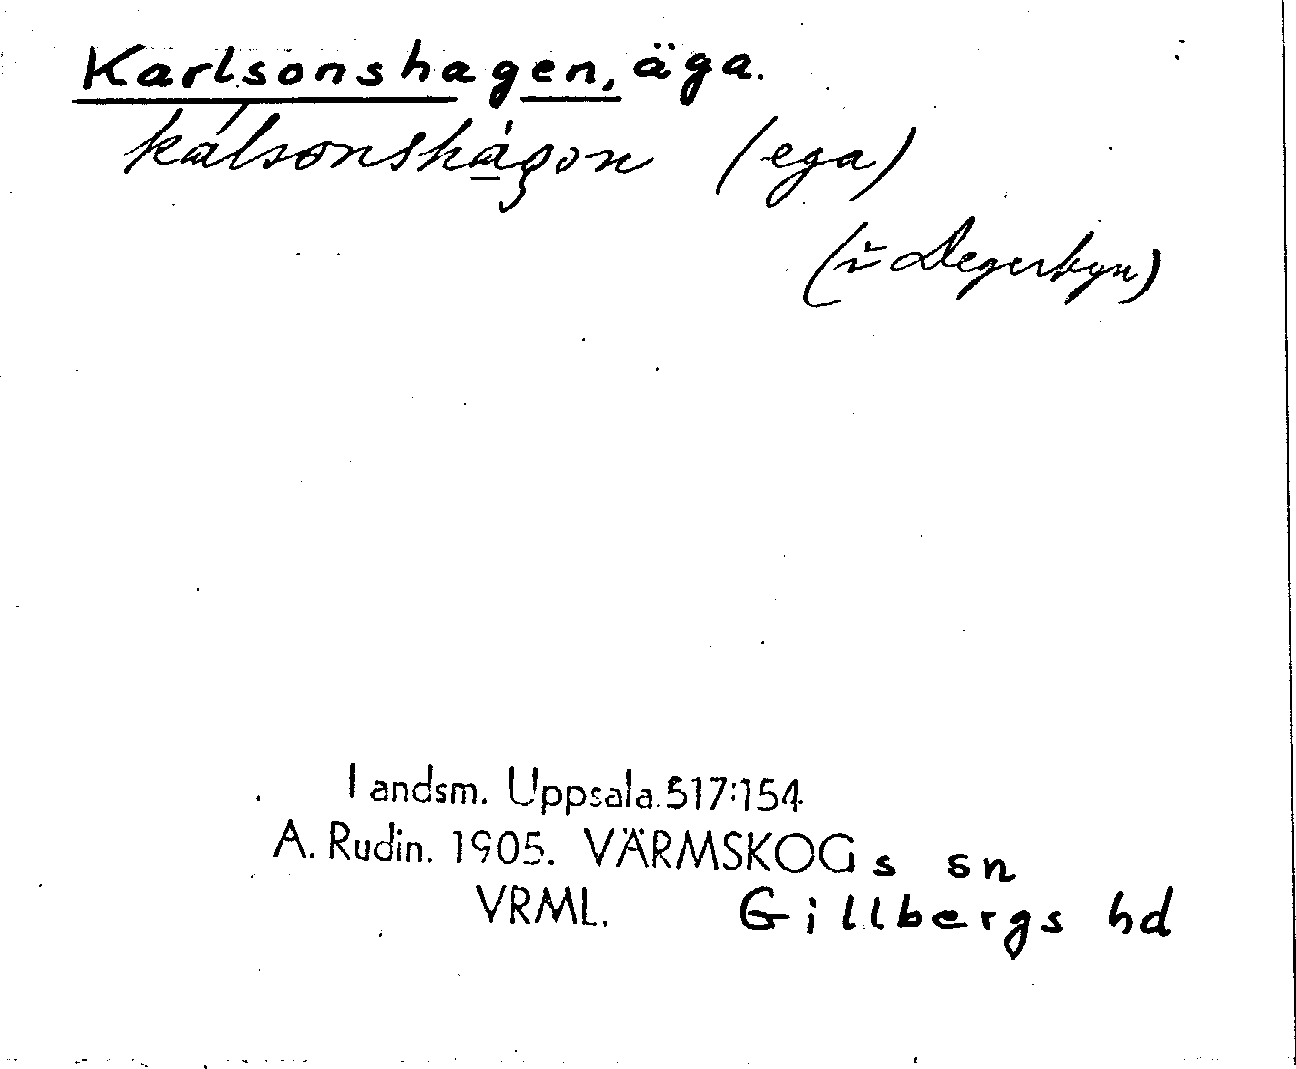 Karlsonshagen, äga.
kalsonshagon (ega)
(i Degerbyn)
Landsm. Uppsala. 517:154
A. Rudin. 1905. VÄRMSKOGs sn
VRML. Gillbergs hd